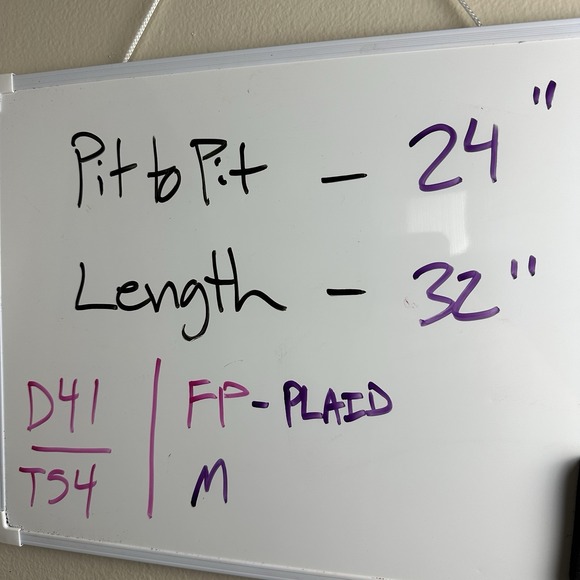 Pit to Pit - 24"
Length - 32"
D41 | FP-PLAID
TS4 | M